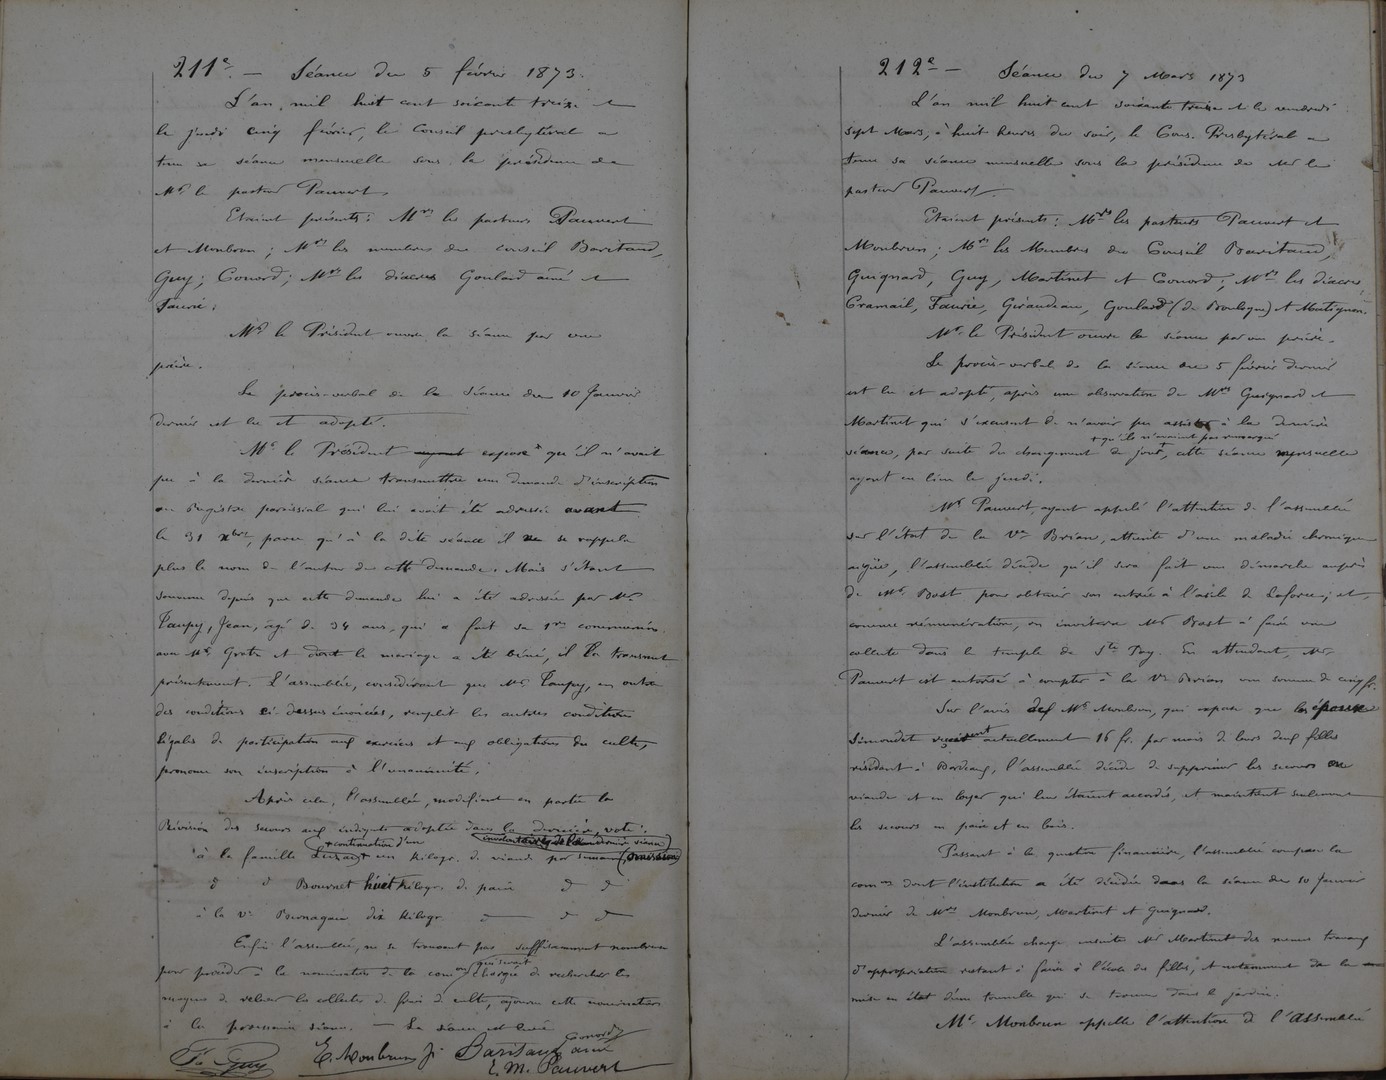 211e. — Séance du 5 février 1873.
L'an mil huit cent soixante treize et
le jeudi cinq février, le Conseil presbytéral a
tenu sa séance mensuelle sous la présidence de
Mr le pasteur Pauvert.
Etaient présents : Mrs les pasteurs Pauvert
et Monbrun ; Mrs les membres du conseil Baritaud,
Guy ; Conord ; Mrs les diacres Goulard aîné et
Faurie.
Mr le Président ouvre la séance par une
prière.
Le procès-verbal de la séance du 10 Janvier
dernier est lu et adopté.
Mr le Président ayant exposé qu'il n'avait
pu à la dernière séance transmettre une demande d'inscription
au Registre paroissial qui lui avait été adressée avant
le 31 Xbre, parce qu'à la dite séance il ne se rappela
plus le nom de l'auteur de cette demande. Mais s'étant
souvenu depuis que cette demande lui a été adressée par Mr
Taupy, Jean, âgé de 34 ans, qui a fait sa 1re communion
avec Mr Grotz et dont le mariage a été béni, il la transmet
présentement. L'assemblée, considérant que Mr Taupy, en outre
des conditions ci-dessus énoncées, remplit les autres conditions
légales de participation aux exercices et aux obligations du culte,
prononce son inscription à l'unanimité.
Après cela, l'assemblée, modifiant en partie la
Révision des secours aux indigents adoptée dans la dernière, vote :
+ continuation d'un
à la famille + un kilogr. de viande par semaine (omission
d d Bournet huit kilogr. de pain d d
à la Ve dix kilogr — d d
Enfin l'assemblée, ne se trouvant pas suffisamment nombreuse
qui serait
pour procéder à la nomination de la comon chargée de rechercher les
moyens de relever la collecte de frais de culte, ajourne cette nomination
à la prochaine séance. — La séance est levée
Conord
Fs Guy E. Monbrun Jr Baritaud aîné
E. M. Pauvert
212e — Séance du 7 Mars 1873
L'an mil huit cent soixante treize et le vendredi
sept Mars, à huit heures du soir, le Cons. Presbytéral a
tenu sa séance mensuelle sous la présidence de Mr le
pasteur Pauvert.
Etaient présents : Mrs les pasteurs Pauvert et
Monbrun ; Mrs les Membres du Conseil Baritaud,
Guignard, Guy, Martinet et Conord ; Mrs les diacres
Cramail, Faurie, Giraudeau, Goulard (de Boulogne) et Matignon.
Mr le Président ouvre la séance par une prière.
Le procès-verbal de la séance du 5 février dernier
est lu et adopté, après une observation de Mrs Guignard et
Martinet qui s'excusent de n'avoir pu assister à la dernière
+ qu'ils n'avaient pas remarqué
séance, par suite du changement de jour +, cette séance mensuelle
ayant eu lieu le jeudi.
Mr Pauvert, ayant appelé l'attention de l'assemblée
sur l'état de la Ve Brian, atteinte d'une maladie chronique
aigüe, l'assemblée décide qu'il sera fait une démarche auprès
de Mr Bost pour obtenir son entrée à l'asile de Laforce ; et,
comme rémunération, on invitera Mr Bost à faire une
collecte dans le temple de Ste Foy. En attendant, Mr
Pauvert est autorisé à compter à la Ve Brian une somme de cinq fr.
Sur l'avis de Mr Monbrun, qui expose que les époux
Simondet reçoivent actuellement 16 fr. par mois de leurs deux filles
résidant à Bordeaux, l'assemblée décide de supprimer les secours en
viande et en loyer qui leur étaient accordés, et maintient seulement
les secours en pain et en bois.
Passant à la question financière, l'assemblée compose la
comon dont l'institution a été décidée dans la séance du 10 Janvier
dernier de Mrs Monbrun, Martinet et Guignard.
L'assemblée charge ensuite Mr Martinet des menus travaux
d'appropriation restant à faire à l'école des filles, et notamment de la
mise en état d'une tonnelle qui se trouve dans le jardin.
Mr Monbrun appelle l'attention de l'Assemblée